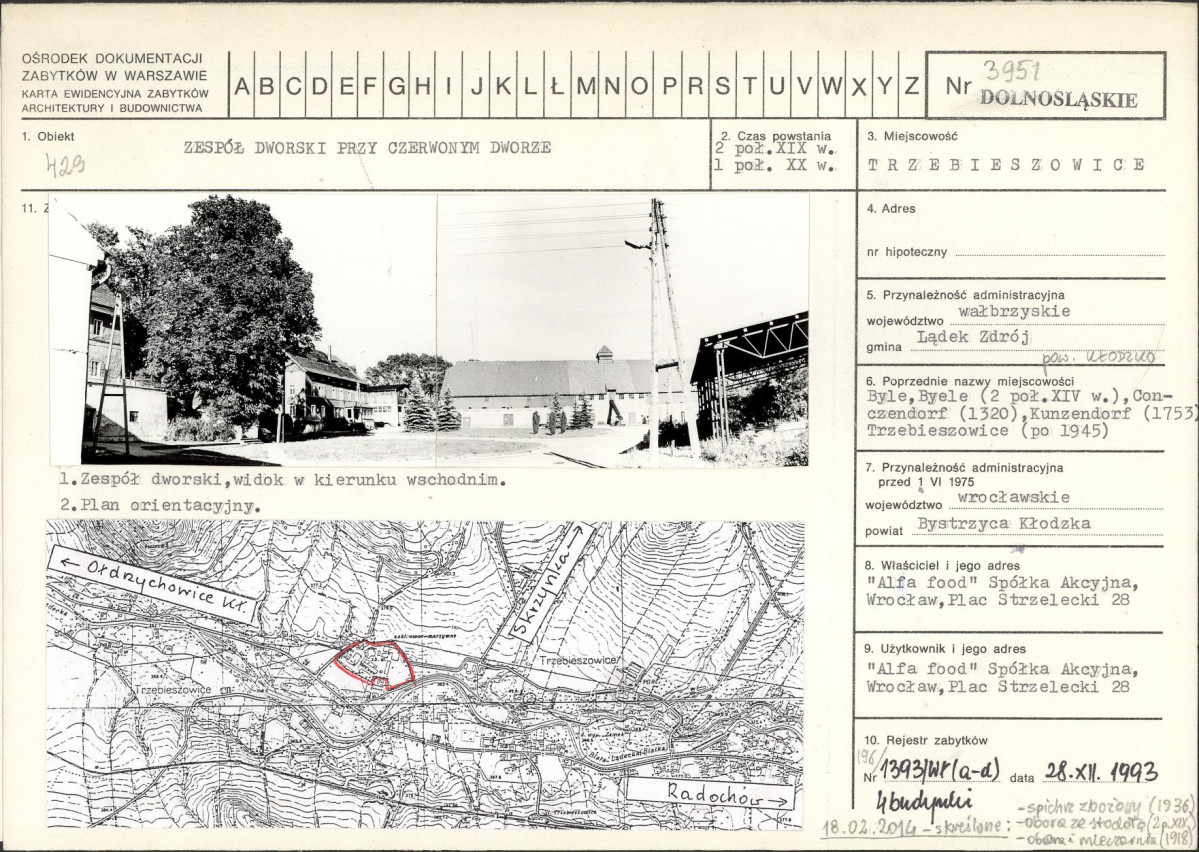 OŚRODEK DOKUMENTACJI
ZABYTKÓW W WARSZAWIE
KARTA EWIDENCYJNA ZABYTKÓW
ARCHITEKTURY I BUDOWNICTWA
A B C D E F G H I J K L Ł M N O P R S T U V W X Y Z
Nr 3951
DOLNOŚLĄSKIE
1. Obiekt
429
ZESPÓŁ DWORSKI PRZY CZERWONYM DWORZE
2. Czas powstania
2 poł.XIX w.
1 poł. XX w.
3. Miejscowość
TRZEBIESZOWICE
4. Adres
nr hipoteczny
5. Przynależność administracyjna
województwo wałbrzyskie
gmina Lądek Zdrój
pow. KŁODZKO
6. Poprzednie nazwy miejscowości
Byle,Byele (2 poł.XIV w.),Con-
czendorf (1320),Kunzendorf (1753)
Trzebieszowice (po 1945)
7. Przynależność administracyjna
przed 1 VI 1975
województwo wrocławskie
powiat Bystrzyca Kłodzka
8. Właściciel i jego adres
"Alfa food" Spółka Akcyjna,
Wrocław,Plac Strzelecki 28
9. Użytkownik i jego adres
"Alfa food" Spółka Akcyjna,
Wrocław,Plac Strzelecki 28
10. Rejestr zabytków
196/
Nr 1393/Wł(a-d) data 28.XII.1993
4 budynki
18.02.2014 - skreślone: - spichrz zbożowy (1936)
- obora ze stodołą (2p.XIX)
- obora i mleczarnia (1918)
11. Z
1.Zespół dworski,widok w kierunku wschodnim.
2.Plan orientacyjny.
← Ołdrzychowice Kł.
Skrzynka →
Trzebieszowice
Trzebieszowice
Biała Lądecka
Radochów →